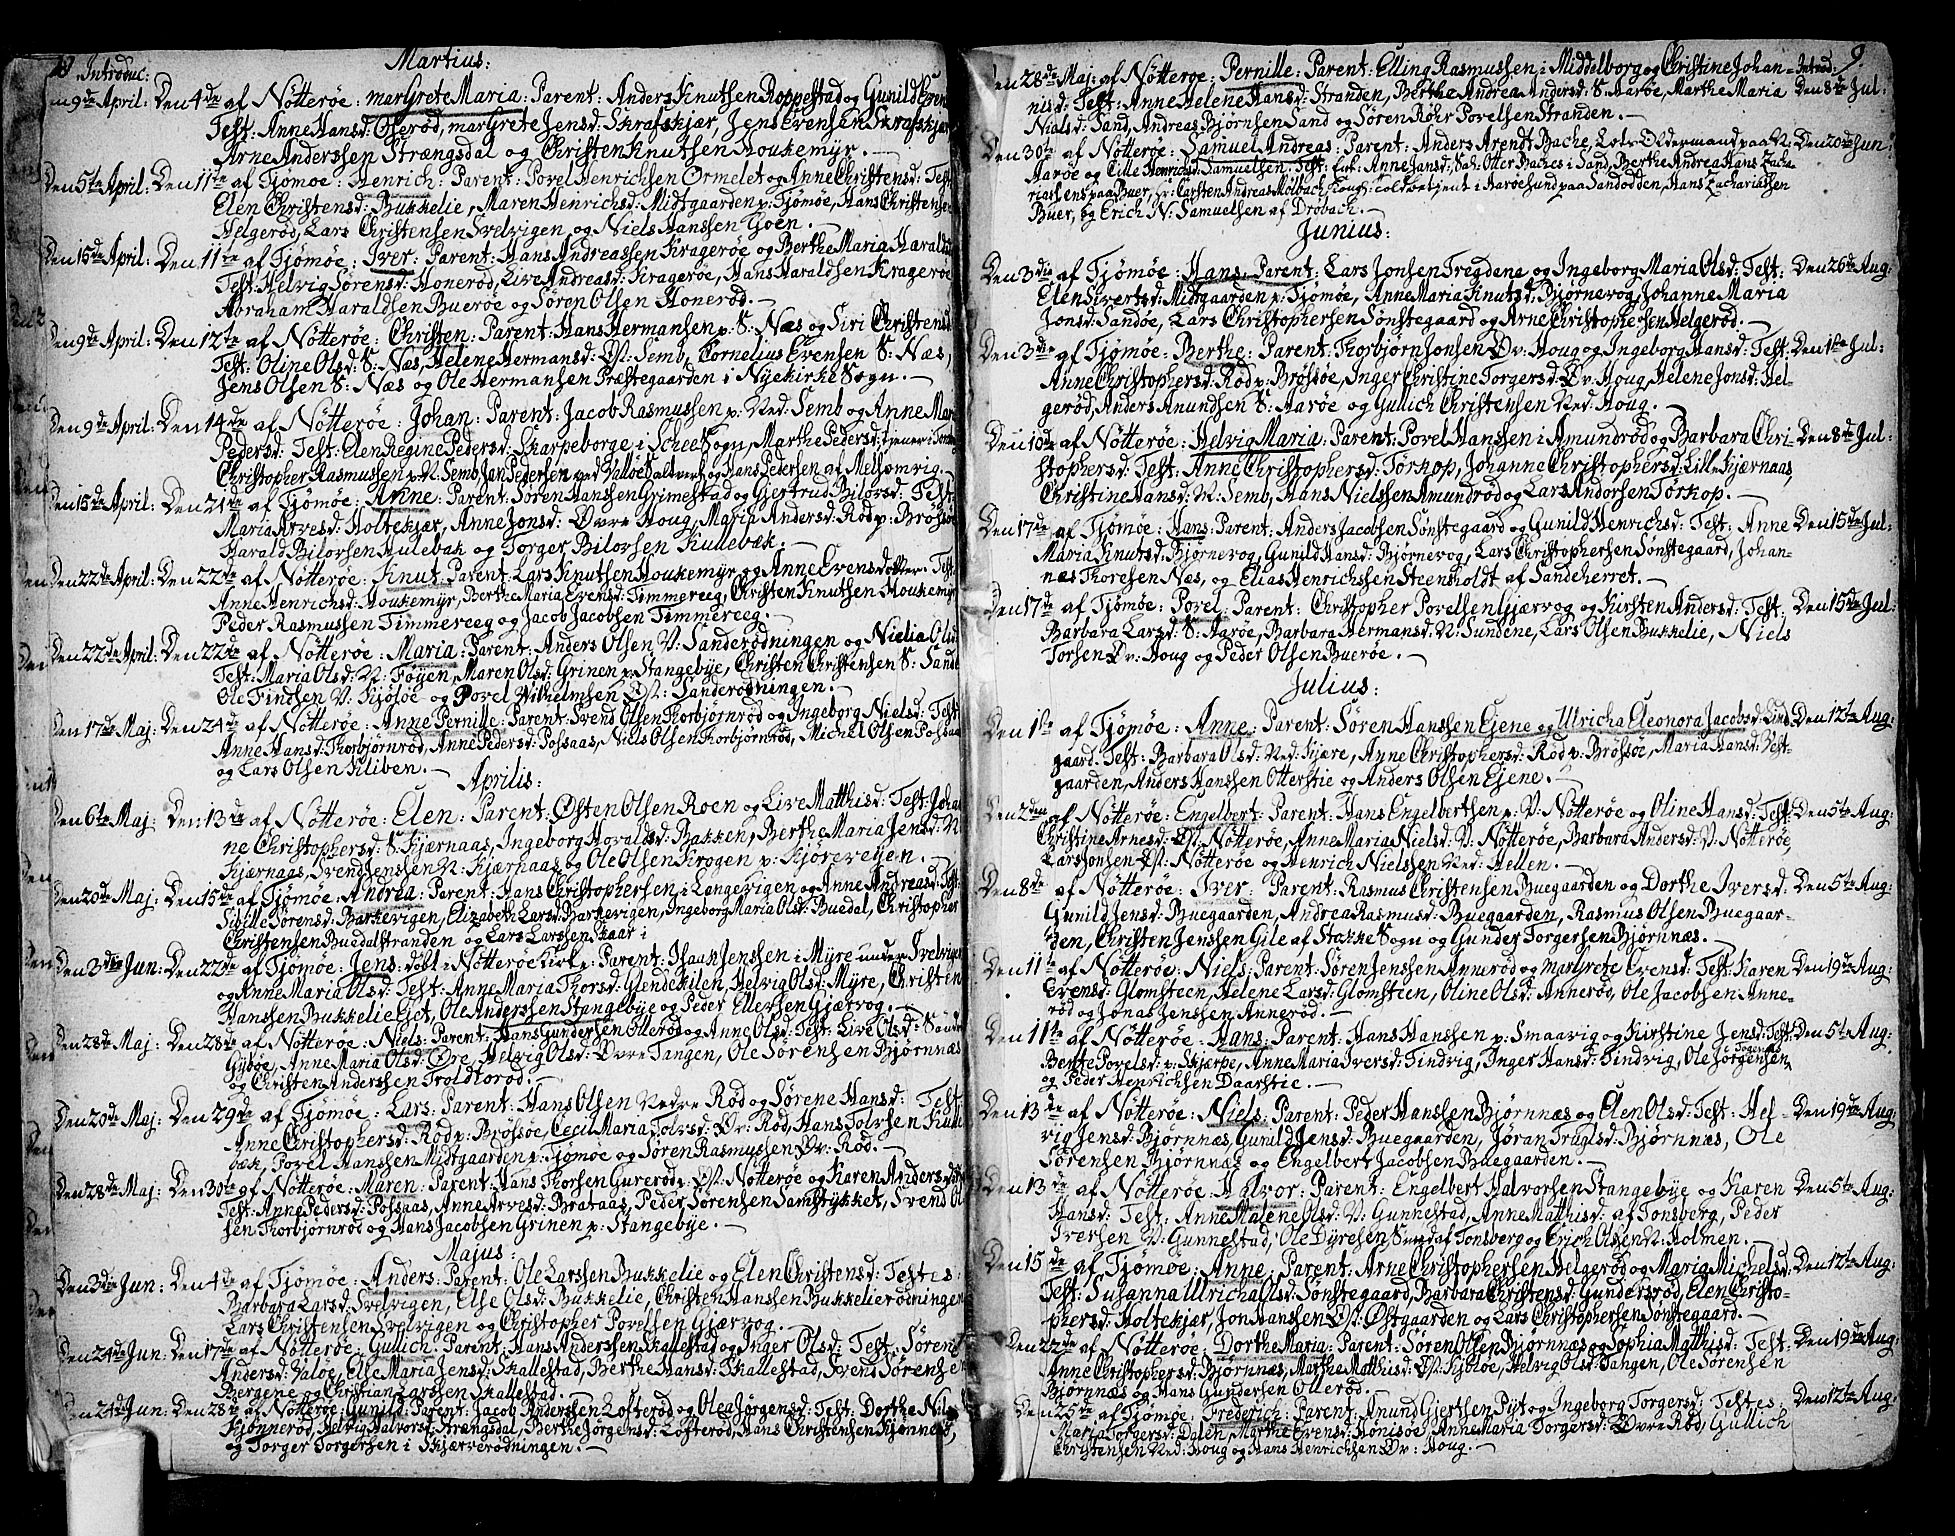 Introduc: Martius:
9de April: Den 4de af Nötterøe: Margrete Maria: Parent: Anders Knutsen Roppestad og Gunild Evens
Test: Anne Hansd: Oserød, Margrete Jensd: Skrafskjær, Jens Evensen Skrafskjær
Arne Anderssen Strængsdal og Christen Knutsen Houkemyr.
Den 5te April: Den 11te af Tjømøe: Henrich: Parent: Povel Henrichsen Ormelet og Anne Christensd: Test:
Elen Christensd: Bukkelie, Maren Henrichsd: Midtgaarden p: Tjömøe, Hans Christensen
Helgerød, Lars Christensen Svelvigen og Niels Hanssen Goen.
Den 15de April: Den 11te af Tjømøe: Iver: Parent: Hans Andreassen Kragerøe og Berthe Maria Haralds
Test: Helvig Sörensd: Honerød, Live Andreasd: Kragerøe, Hans Haraldsen Kragerøe
Abraham Haraldsen Buerøe og Sören Olsen Honerød.
Den 9de April: Den 12te af Nøtterøe: Christen: Parent: Hans Hermansen p: S: Næs og Siri Christensd
Test: Oline Olsd: S: Næs, Helene Hermansd: Øst: Semb, Cornelius Evensen S: Næs,
Jens Olsen S: Næs og Ole Hermansen Præstegaarden i Nyekirke Sogn.
Den 9de April: Den 14de af Nøtterøe: Johan: Parent: Jacob Rasmussen p: Ned: Semb og Anne Mar
Pedersd: Test: Elen Regine Pedersd: Skarpeborge i Schee Sogn, Marthe Pedersd: tjener i
Christopher Rasmussen p: N: Semb, Jan Pedersen ved Valløe Saltverk og Hans Pedersen af Melsomvig.
Den 15de April: Den 21de af Tjømøe: Anne: Parent: Sören Hanssen Grimestad og Gjertrud Bilorsd: Test:
Maria Arvesd: Holtekjær, Anne Jonsd: Øvre Houg, Maria Andersd: Rød p: Brøtsøe
Harald Bilorsen Hulebak og Torger Bilorsen Kullebæk.
Den 22de April: Den 22de af Nötterøe: Knut: Parent: Lars Knutsen Houkemyr og Anne Evensdotter: Test:
Anne Henrichsd: Houkemyr, Berthe Maria Evensd: Timmereeg, Christen Knutsen Houkemyr
Peder Rasmussen Timmereeg og Jacob Jacobsen Timmereeg.
Den 22de April: Den 22de af Nötterøe: Maria: Parent: Anders Olsen V: Sanderödningen og Nielia Olsd
Test: Maria Olsd: N: Föyen, Maren Olsd: Grinen p: Stangebye, Christen Christensen S: Sande
Ole Findsen V: Kjøløe og Povel Wilhelmsen Øst: Sanderödningen.
Den 17de Maj: Den 24de af Nøtterøe: Anne Pernille: Parent: Svend Olsen Thorbjørnrød og Ingeborg Nielsd: Test
Anne Hansd: Thorbjørnrød, Anne Pedersd: Possaas, Niels Olsen Thorbjørnrød, Michel Olsen Possaas
og Lars Olsen Kiliben.
Aprilis:
Den 6te Maj: Den 13de af Nötterøe: Elen: Parent: Østen Olsen Roen og Live Matthisd: Test: Johan
ne Christophersd: S: Kjærnaas, Ingeborg Hovalsd: Bakken, Berthe Maria Jensd: N
Kjærnaas, Svend Jenssen N: Kjærnaas og Ole Olsen Krogen p: Kjøreveyen.
Den 20de Maj: Den 15de af Tjømøe: Andrea: Parent: Hans Christophersen i Langevigen og Anne Andreasd: Test:
Sibille Sörensd: Barkevigen, Elizabeth Larsd: Barkevigen, Ingeborg Maria Olsd: Buedal, Christopher
Christensen Buedalstranden og Lars Larssen Skaar i
Den 3die Jun: Den 22de af Tjømøe: Jens: döbt i Nøtterøe Kirke: Parent: Isaak Jenssen i Myre under Svelvigen
og Anne Maria Olsd: Test: Anne Maria Thorsd: Glendekilen, Helvig Olsd: Myre, Christen
Hanssen Bukkelie Eiet, Ole Anderssen Stangebye og Peder Ellevsen Gjærvog.
Den 28de Maj: Den 28de af Nötterøe: Niels: Parent: Hans Gundersen Ollerød og Anne Olsd: Test: Live Olsd: Sönde
Gybøe, Anne Maria Olsd: Øre, Helvig Olsd: Øvre Tangen, Ole Sörensen Bjørnnæs
og Christen Anderssen Troldtorød.
Den 20de Maj: Den 29de af Tjømøe: Lars: Parent: Hans Olsen Nedre Rød og Sörene Hansd: Test:
Anne Christophersd: Rød p: Brøtsøe, Cecil Maria Tolvsd: Øv: Rød, Hans Tolvsen Kulle
bæk, Povel Hanssen Midtgaarden p: Tjømøe og Søren Rasmussen Øv: Rød.
Den 28de Maj: Den 30te af Nøtterøe: Maren: Parent: Hans Thorsen Gurerød: Øst: Nøtterøe og Karen Andersd
Test: Anne Pedersd: Possaas, Anne Arvesd: Brataas, Peder Sørensen Samstykket, Svend Ol
sen Thorbjørnrød og Hans Jacobsen Grinen p: Stangebye.
Majus:
Den 3die Jun: Den 4de af Tjømøe: Anders: Parent: Ole Larssen Bukkelie og Elen Christensd: Testes:
Barbara Larsd: Svelvigen, Else Olsd: Bukkelie, Christen Hanssen Bukkelierödningen
Lars Christensen Svelvigen og Christopher Povelsen Gjærvog.
Den 24de Jun: Den 17de af Nötterøe: Gullich: Parent: Hans Anderssen Skallestad og Inger Olsd: Test: Sören
Andersd: Valøe, Else Maria Jensd: Skallestad, Berthe Hansd: Skallestad, Svend Sörensen
Bergene og Christian Larssen Skallestad.
Den 24de Jun: Den 28de af Nötterøe: Gunild: Parent: Jacob Anderssen Lofterød og Olea Jørgensd: Test: Dorthe Nils
Kjønnerød, Helvig Halvorsd: Strængsdal, Berthe Jørgensd: Lofterød, Hans Christensen Kjønnerød,
og Torger Torgersen i Skjærverödningen.
9.
Den 28de Maj: af Nötterøe: Pernille: Parent: Elling Rasmussen i Middelborg og Christine Johan- Introd:
nisd: Test: Anne Helene Hansd: Stranden, Berthe Andrea Andersd: S: Aarøe, Marthe Maria Den 8de Jul:
Nielsd: Sand, Andreas Bjørnsen Sand og Sören Röhr Povelsen Stranden.
Den 30te af Nötterøe: Samuel Andreas: Parent: Anders Arendt Bache, Lots Oldermand paa N: Den 20de Jun:
Aarøe og Cille Henricha Samuelsen. Test: Anne Jansd: Sah: Otter Baches i Sand, Berthe Andrea Hans Zacha-
riassens paa Buer, Hr: Carsten Andreas Molbach, Kong: Toldbetjent i Aarøesund paa Sandodden, Hans Zachariassen
Buer, og Erich N: Samuelsen af Dröbach.
Junius:
Den 3die af Tjømøe: Hans: Parent: Lars Jonsen Tregdene og Ingeborg Maria Olsd: Test: Den 26de Aug:
Elen Sivertsd: Midtgaarden p: Tjømøe, Anne Maria Knutsd: Bjørnevog, Johanne Maria
Jonsd: Sandøe, Lars Christophersen Sönstegaard og Arne Christophersen Helgerød.
Den 3die af Tjømøe: Berthe: Parent: Thorbjørn Jonsen Øv: Houg og Ingeborg Hansd: Test: Den 1ste Jul:
Anne Christophersd: Rød p: Brøtsøe, Inger Christine Torgersd: Øv: Houg, Helene Jonsd: Hel-
gerød, Anders Anundsen S: Aarøe og Gullich Christensen Ned: Houg.
Den 10de af Nötterøe: Helvig Maria: Parent: Povel Hanssen i Amundrød og Barbara Chri- Den 8de Jul:
stophersd: Test: Anne Christophersd: Torkop, Johanne Christophersd: Lille Kjærnaas,
Christine Hansd: N: Semb, Hans Nielssen Amundrød og Lars Andorsen Torkop.
Den 17de af Tjømøe: Hans: Parent: Anders Jacobsen Sönstegaard og Gunild Henrichsd: Test: Anne Den 15de Jul:
Maria Knutsd: Bjørnevog, Gunild Hansd: Bjørnevog, Lars Christophersen Sönstegaard, Johan-
nes Thoresen Næs, og Elias Henrichssen Steensholdt af Sandeherret.
Den 17de af Tjømøe: Povel: Parent: Christopher Povelsen Gjærvog og Kirsten Andersd: Test: Den 15de Jul:
Barbara Larsd: S: Aarøe, Barbara Hermansd: N: Sundene, Lars Olsen Bukkelie, Niels
Torsen Øv: Houg og Peder Olsen Buerøe.
Julius:
Den 1ste af Tjømøe: Anne: Parent: Sören Hanssen Ejene og Ulricha Eleonora Jacobsd: Den 12te Aug:
gaard. Test: Barbara Olsd: Ned: Kjære, Anne Christophersd: Rød p: Brøtsøe, Maria Hansd: Vest-
gaarden, Anders Hanssen Otterstie og Anders Olsen Ejene.
Den 2den af Nötterøe: Engelbert: Parent: Hans Engelbertsen p: V: Nötterøe og Oline Hansd: Test: Den 5te Aug:
Christine Arnesd: Øst: Nötterøe, Anne Maria Nielsd: V: Nötterøe, Barbara Andersd: V: Nötterøe,
Lars Jonsen Øst: Nötterøe og Henrich Nielssen Ned: Hellen.
Den 8de af Nötterøe: Iver: Parent: Rasmus Christensen Buegaarden og Dorthe Iversd: Den 5te Aug:
Gunild Jensd: Buegaarden, Andrea Rasmusd: Buegaarden, Rasmus Olsen Buegaar-
den, Christen Jenssen Gile af Stokke Sogn og Gunder Torgersen Bjørnnæs.
Den 11te af Nötterøe: Niels: Parent: Sören Jenssen Annerød og Margrete Evensd: Test: Karen Den 19de Aug:
Evensd: Glomsteen, Helene Larsd: Glomsteen, Oline Olsd: Annerød, Ole Jacobsen Anne-
rød og Jonas Jenssen Annerød.
Den 11te af Nötterøe: Hans: Parent: Hans Hansen p: Smaavig og Kirstine Jensd: Test: Den 5te Aug:
Berthe Povelsd: p: Skjerpe, Anne Maria Iversd: Tindvig, Inger Hansd: Tindvig, Ole Jörgensen
og Peder Henrichsen Daarstie.
Den 13de af Nötterøe: Niels: Parent: Peder Hanssen Bjørnnæs og Elen Olsd: Test: Hel- Den 19de Aug:
vig Jensd: Bjørnnæs, Gunild Jensd: Buegaarden, Jøran Truglsd: Bjørnnæs, Ole
Sörensen Bjørnnæs og Engelbert Jacobsen Buegaarden.
Den 13de af Nötterøe: Halvor: Parent: Engelbert Halvorsen Stangebye og Karen Den 5te Aug:
Hansd: Test: Anne Malene Olsd: V: Gunnestad, Anne Matthisd: af Tonsberg, Peder
Iversen V: Gunnestad, Ole Dyresen Sund af Tonsberg og Erich Olsen N: Holmen.
Den 15de af Tjømøe: Anne: Parent: Arne Christophersen Helgerød og Maria Michelsd: Den 12te Aug:
Test: Susanna Ulricha Olsd: Sönstegaard, Barbara Christensd: Gundersrød, Elen Christo-
phersd: Holtekjær, Jon Hanssen Øst: Østgaarden og Lars Christophersen Sönstegaard.
Den 22de af Nötterøe: Dorthe Maria: Parent: Sören Olsen Bjørnnæs og Sophia Matthisd: Test: Den 19de Aug:
Anne Christophersd: Bjørnnæs, Marthe Matthisd: Øst: Gybøe, Helvig Olsd: Tangen, Ole Sörensen
Bjørnnæs og Hans Gundersen Ollerød.
Den 25de af Tjømøe: Frederich: Parent: Anund Gjertsen Pijt og Ingeborg Torgersd: Testes: Den 12te Aug:
Maria Torgersd: Dalen, Marthe Evensd: Honisøe, Anne Maria Torgersd: Øvre Rød, Gullich
Christensen Ned: Houg og Hans Henrichsen Øv: Houg.